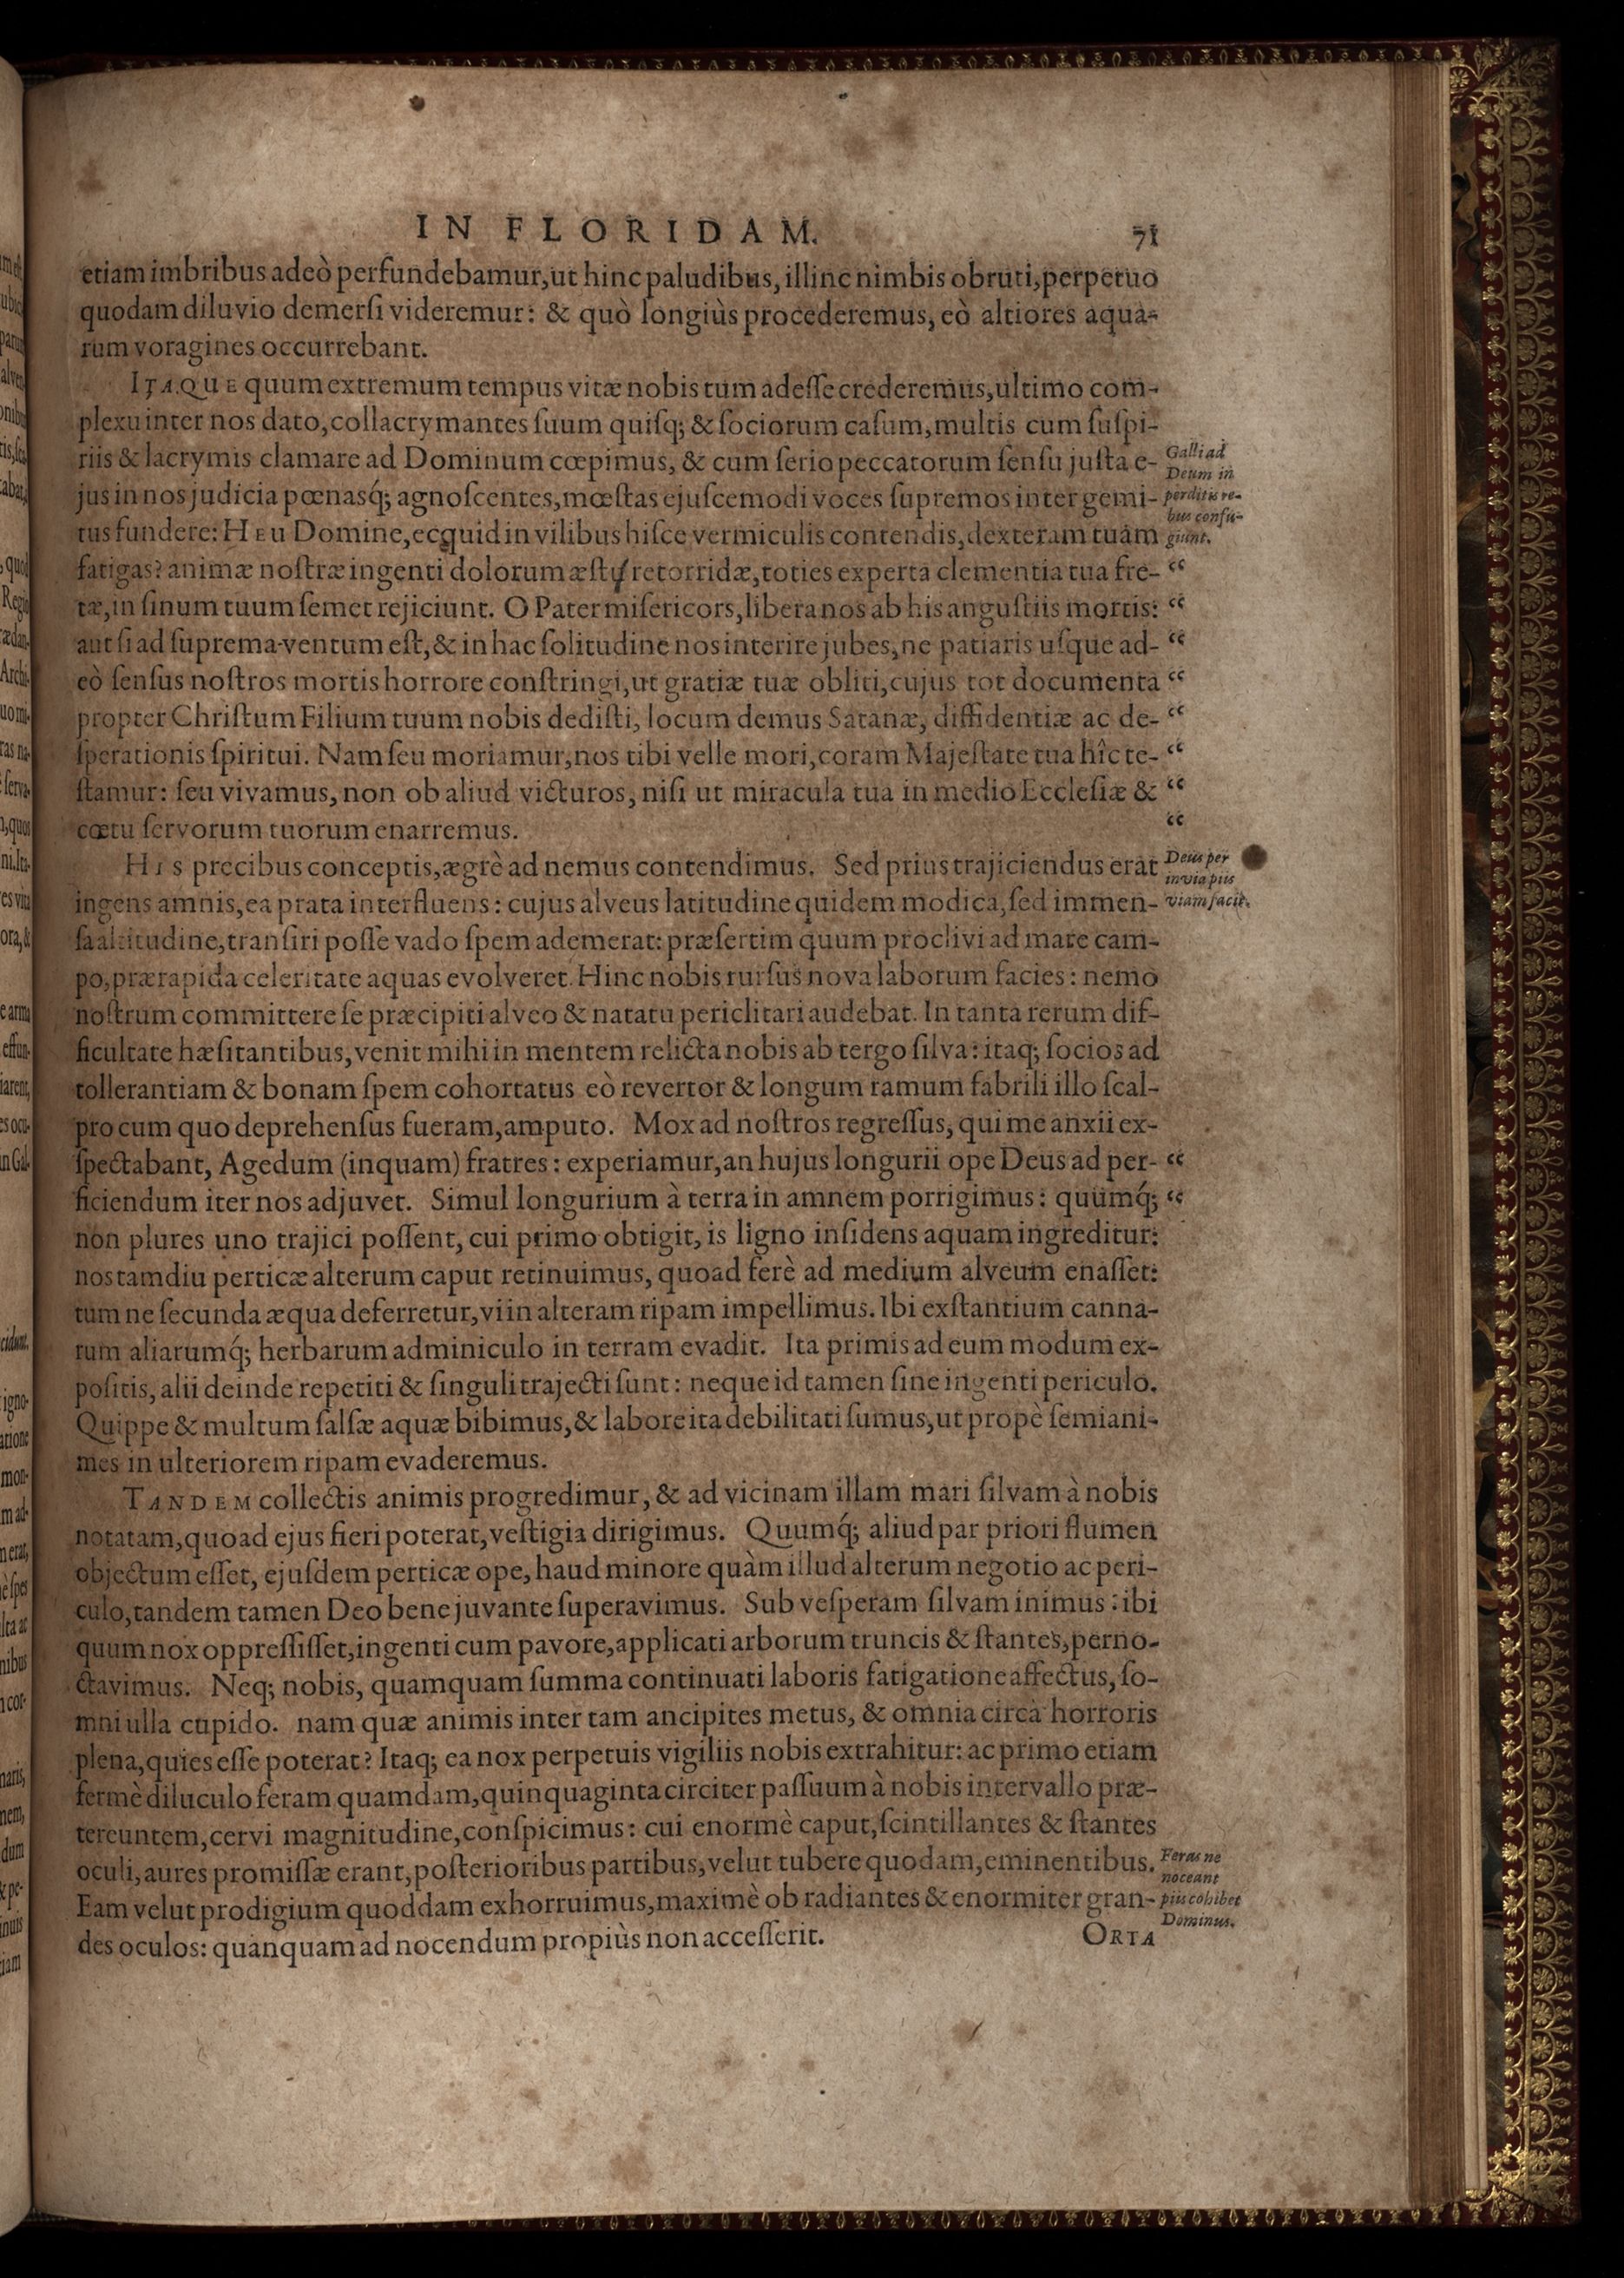 IN FLORIDAM. 71
etiam imbribus adeò perfundebamur, ut hinc paludibus, illinc nimbis obruti, perpetuo
quodam diluvio demerſi videremur: & quò longiùs procederemus, eò altiores aqua-
rum voragines occurrebant.
ITAQUE quum extremum tempus vitæ nobis tum adeſſe crederemus, ultimo com-
plexu inter nos dato, collacrymantes ſuum quiſq; & ſociorum caſum, multis cum ſuſpi-
riis & lacrymis clamare ad Dominum cœpimus, & cum ſerio peccatorum ſenſu juſta e-
Galli ad
Deum in
perditis re-
bus confu-
giunt.
jus in nos judicia pœnasq́; agnoſcentes, mœſtas ejuſcemodi voces ſupremos inter gemi-
tus fundere: HEU Domine, ecquid in vilibus hiſce vermiculis contendis, dexteram tuam
fatigas? animæ noſtræ ingenti dolorum æſtu retorridæ, toties experta clementia tua fre- “
tæ, in ſinum tuum ſemet rejiciunt. O Pater miſericors, libera nos ab his anguſtiis mortis: “
aut ſi ad ſuprema ventum eſt, & in hac ſolitudine nos interire jubes, ne patiaris uſque ad- “
eò ſenſus noſtros mortis horrore conſtringi, ut gratiæ tuæ obliti, cujus tot documenta “
propter Chriſtum Filium tuum nobis dediſti, locum demus Satanæ, diffidentiæ ac de- “
ſperationis ſpiritui. Nam ſeu moriamur, nos tibi velle mori, coram Majeſtate tua hîc te- “
ſtamur: ſeu vivamus, non ob aliud victuros, niſi ut miracula tua in medio Eccleſiæ & “
cœtu ſervorum tuorum enarremus. “
HIS precibus conceptis, ægrè ad nemus contendimus. Sed prius trajiciendus erat
Deus per
invia piis
viam facit.
ingens amnis, ea prata interfluens: cujus alveus latitudine quidem modica, ſed immen-
ſa altitudine, tranſiri poſſe vado ſpem ademerat: præſertim quum proclivi ad mare cam-
po, prærapida celeritate aquas evolveret. Hinc nobis rurſus nova laborum facies: nemo
noſtrum committere ſe præcipiti alveo & natatu periclitari audebat. In tanta rerum dif-
ficultate hæſitantibus, venit mihi in mentem relicta nobis ab tergo ſilva: itaq; ſocios ad
tollerantiam & bonam ſpem cohortatus eò revertor & longum ramum fabrili illo ſcal-
pro cum quo deprehenſus fueram, amputo. Mox ad noſtros regreſſus, qui me anxii ex-
ſpectabant, Agedum (inquam) fratres: experiamur, an hujus longurii ope Deus ad per- “
ficiendum iter nos adjuvet. Simul longurium à terra in amnem porrigimus: quumq́; “
non plures uno trajici poſſent, cui primo obtigit, is ligno inſidens aquam ingreditur:
nos tamdiu perticæ alterum caput retinuimus, quoad ferè ad medium alveum enaſſet:
tum ne ſecunda æqua deferretur, vi in alteram ripam impellimus. Ibi exſtantium canna-
rum aliarumq́; herbarum adminiculo in terram evadit. Ita primis ad eum modum ex-
poſitis, alii deinde repetiti & ſinguli trajecti ſunt: neque id tamen ſine ingenti periculo.
Quippe & multum ſalſæ aquæ bibimus, & labore ita debilitati ſumus, ut propè ſemiani-
mes in ulteriorem ripam evaderemus.
TANDEM collectis animis progredimur, & ad vicinam illam mari ſilvam à nobis
notatam, quoad ejus fieri poterat, veſtigia dirigimus. Quumq́; aliud par priori flumen
objectum eſſet, ejuſdem perticæ ope, haud minore quàm illud alterum negotio ac peri-
culo, tandem tamen Deo bene juvante ſuperavimus. Sub veſperam ſilvam inimus: ibi
quum nox oppreſſiſſet, ingenti cum pavore, applicati arborum truncis & ſtantes, perno-
ctavimus. Neq; nobis, quamquam ſumma continuati laboris fatigatione affectus, ſo-
mni ulla cupido. nam quæ animis inter tam ancipites metus, & omnia circa horroris
plena, quies eſſe poterat? Itaq; ea nox perpetuis vigiliis nobis extrahitur: ac primo etiam
fermè diluculo feram quamdam, quinquaginta circiter paſſuum à nobis intervallo præ-
tereuntem, cervi magnitudine, conſpicimus: cui enormè caput, ſcintillantes & ſtantes
oculi, aures promiſſæ erant, poſterioribus partibus, velut tubere quodam, eminentibus.
Feras ne
noceant
piis cohibet
Dominus.
Eam velut prodigium quoddam exhorruimus, maximè ob radiantes & enormiter gran-
des oculos: quanquam ad nocendum propiùs non acceſſerit.
ORTA